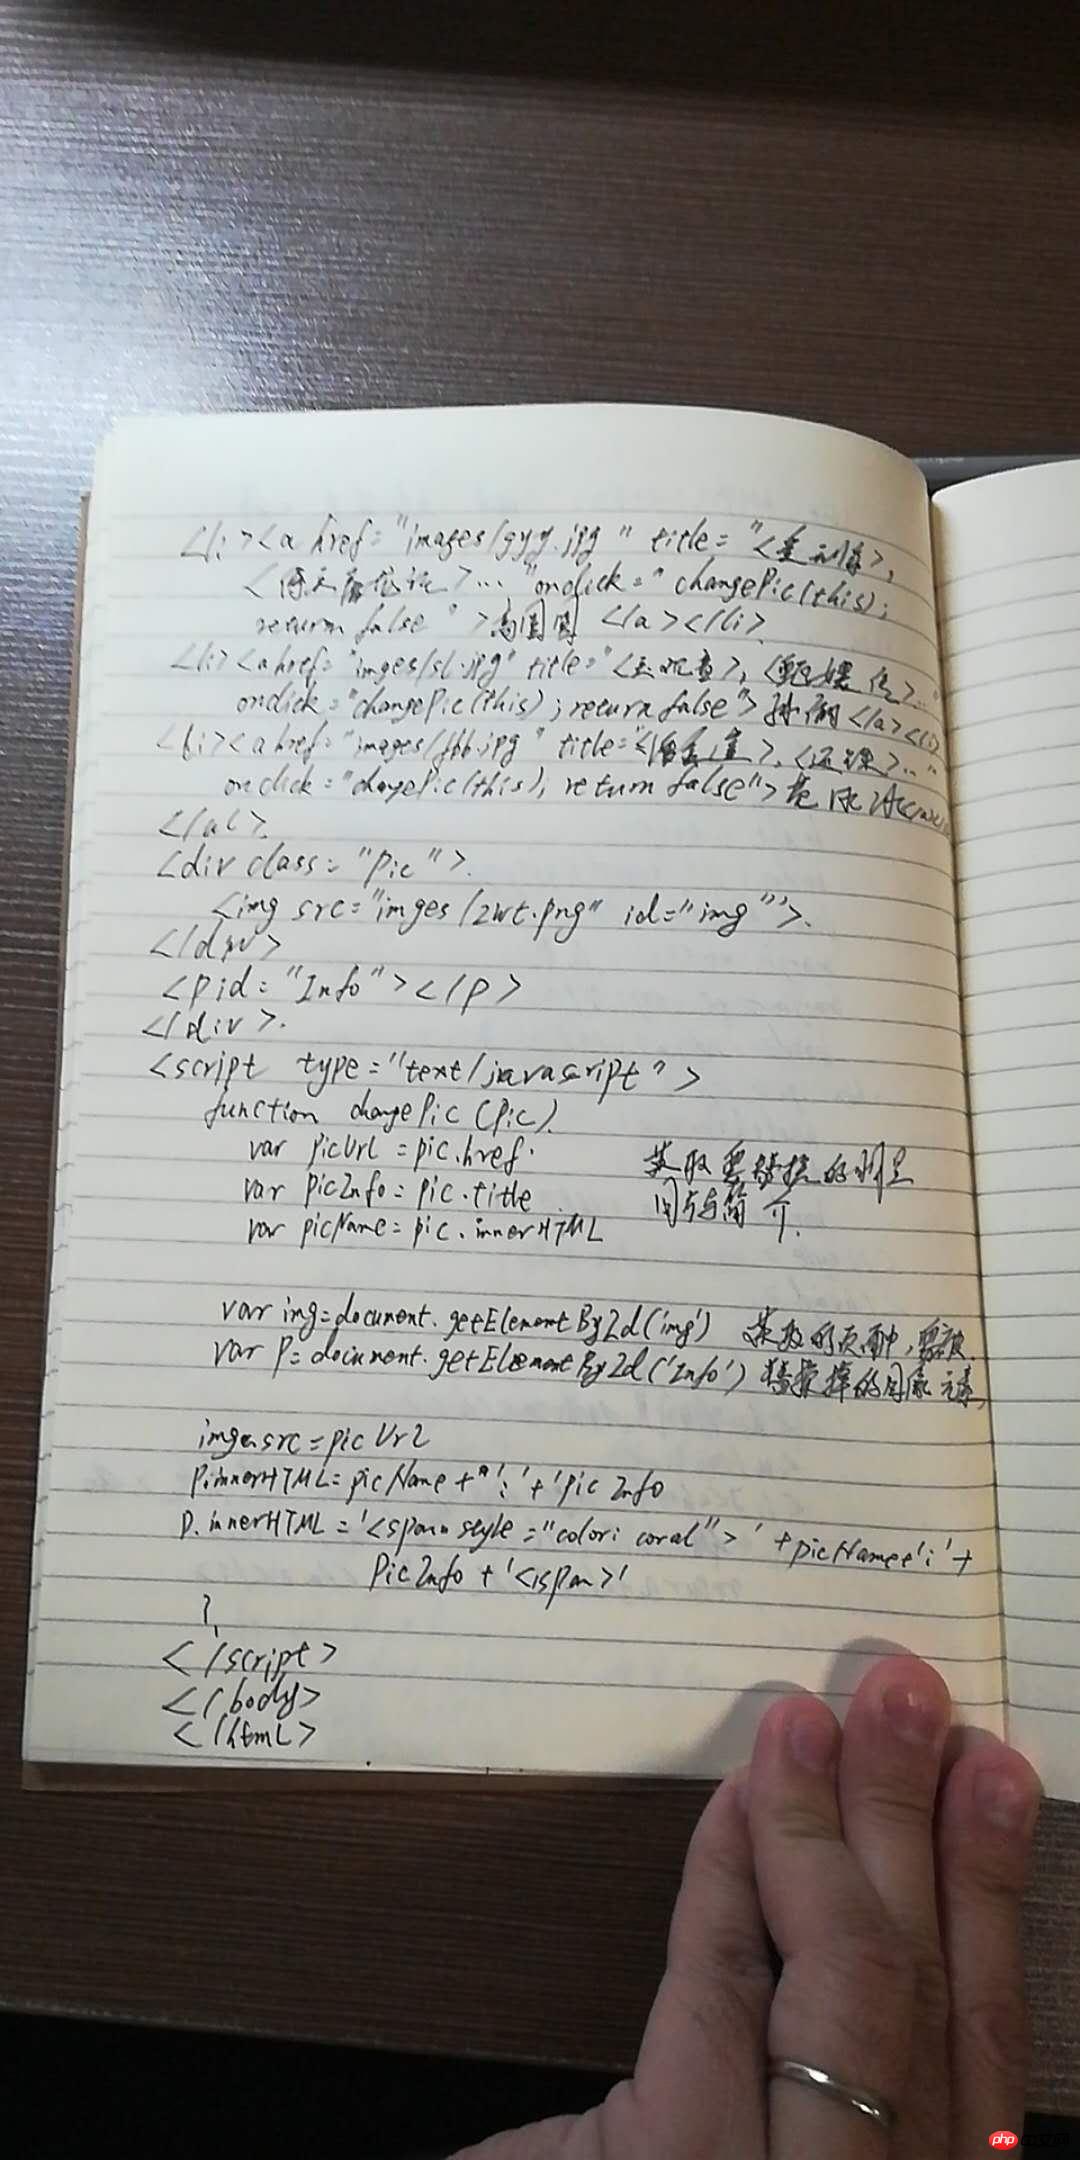 <li><a href="images/gyy.jpg" title="<
>..."onclick="changePic(this);
return false">高圆圆</a></li>
<li><a href="imges/sl.jpg" title="<玉观音>,<甄嬛传>..."
onclick="changePic(this);return false">孙俪</a><li>
<li><a href="images/fbb.jpg" title="<
onclick="changePic(this);return false">范冰冰</a></li>
</ul>.
<div class="pic">.
<img src="imges/zwt.png" id="img">.
</div>
<p id="Info"></p>
</div>.
<script type="text/javascript">
function changePic(pic).
var picUrl=pic.href.
var picInfo=pic.title
var picName=pic.innerHTML
获取要替换的明星
图片与简介.
var img=document.getElementById('img')
var p=document.getElementById('Info')
获取的页面中,要被
替换掉的图像元素,
img.src=picUrl
p.innerHTML=picName+':'+'picInfo
p.innerHTML='<span style="color: coral">'+picName+':'+
PicInfo+'</span>'
}
</script>
</body>
</html>
php中文网